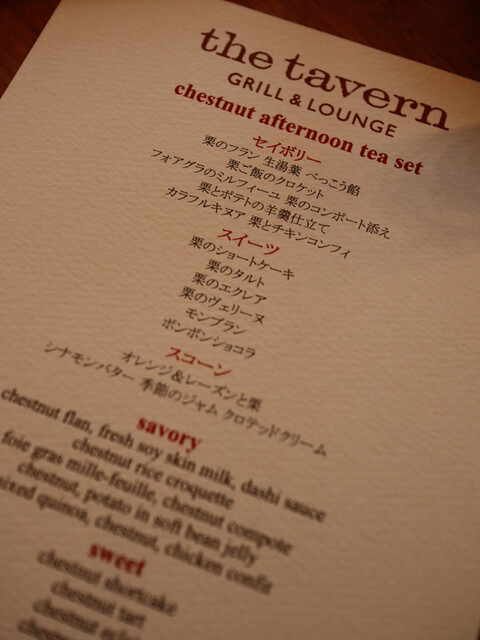 the tavern
GRILL & LOUNGE
chestnut afternoon tea set
セイボリー
栗のフラン 生湯葉 べっこう餡
栗ご飯のクロケット
フォアグラのミルフィーユ 栗のコンポート添え
栗とポテトの羊羹仕立て
カラフルキヌア 栗とチキンコンフィ
スイーツ
栗のショートケーキ
栗のタルト
栗のエクレア
栗のヴェリーヌ
モンブラン
ボンボンショコラ
スコーン
オレンジ＆レーズンと栗
シナモンバター 季節のジャム クロテッドクリーム
savory
chestnut flan, fresh soy skin milk, dashi sauce
chestnut rice croquette
foie gras mille-feuille, chestnut compote
chestnut, potato in soft bean jelly
mixed quinoa, chestnut, chicken confit
sweet
chestnut shortcake
chestnut tart
chestnut